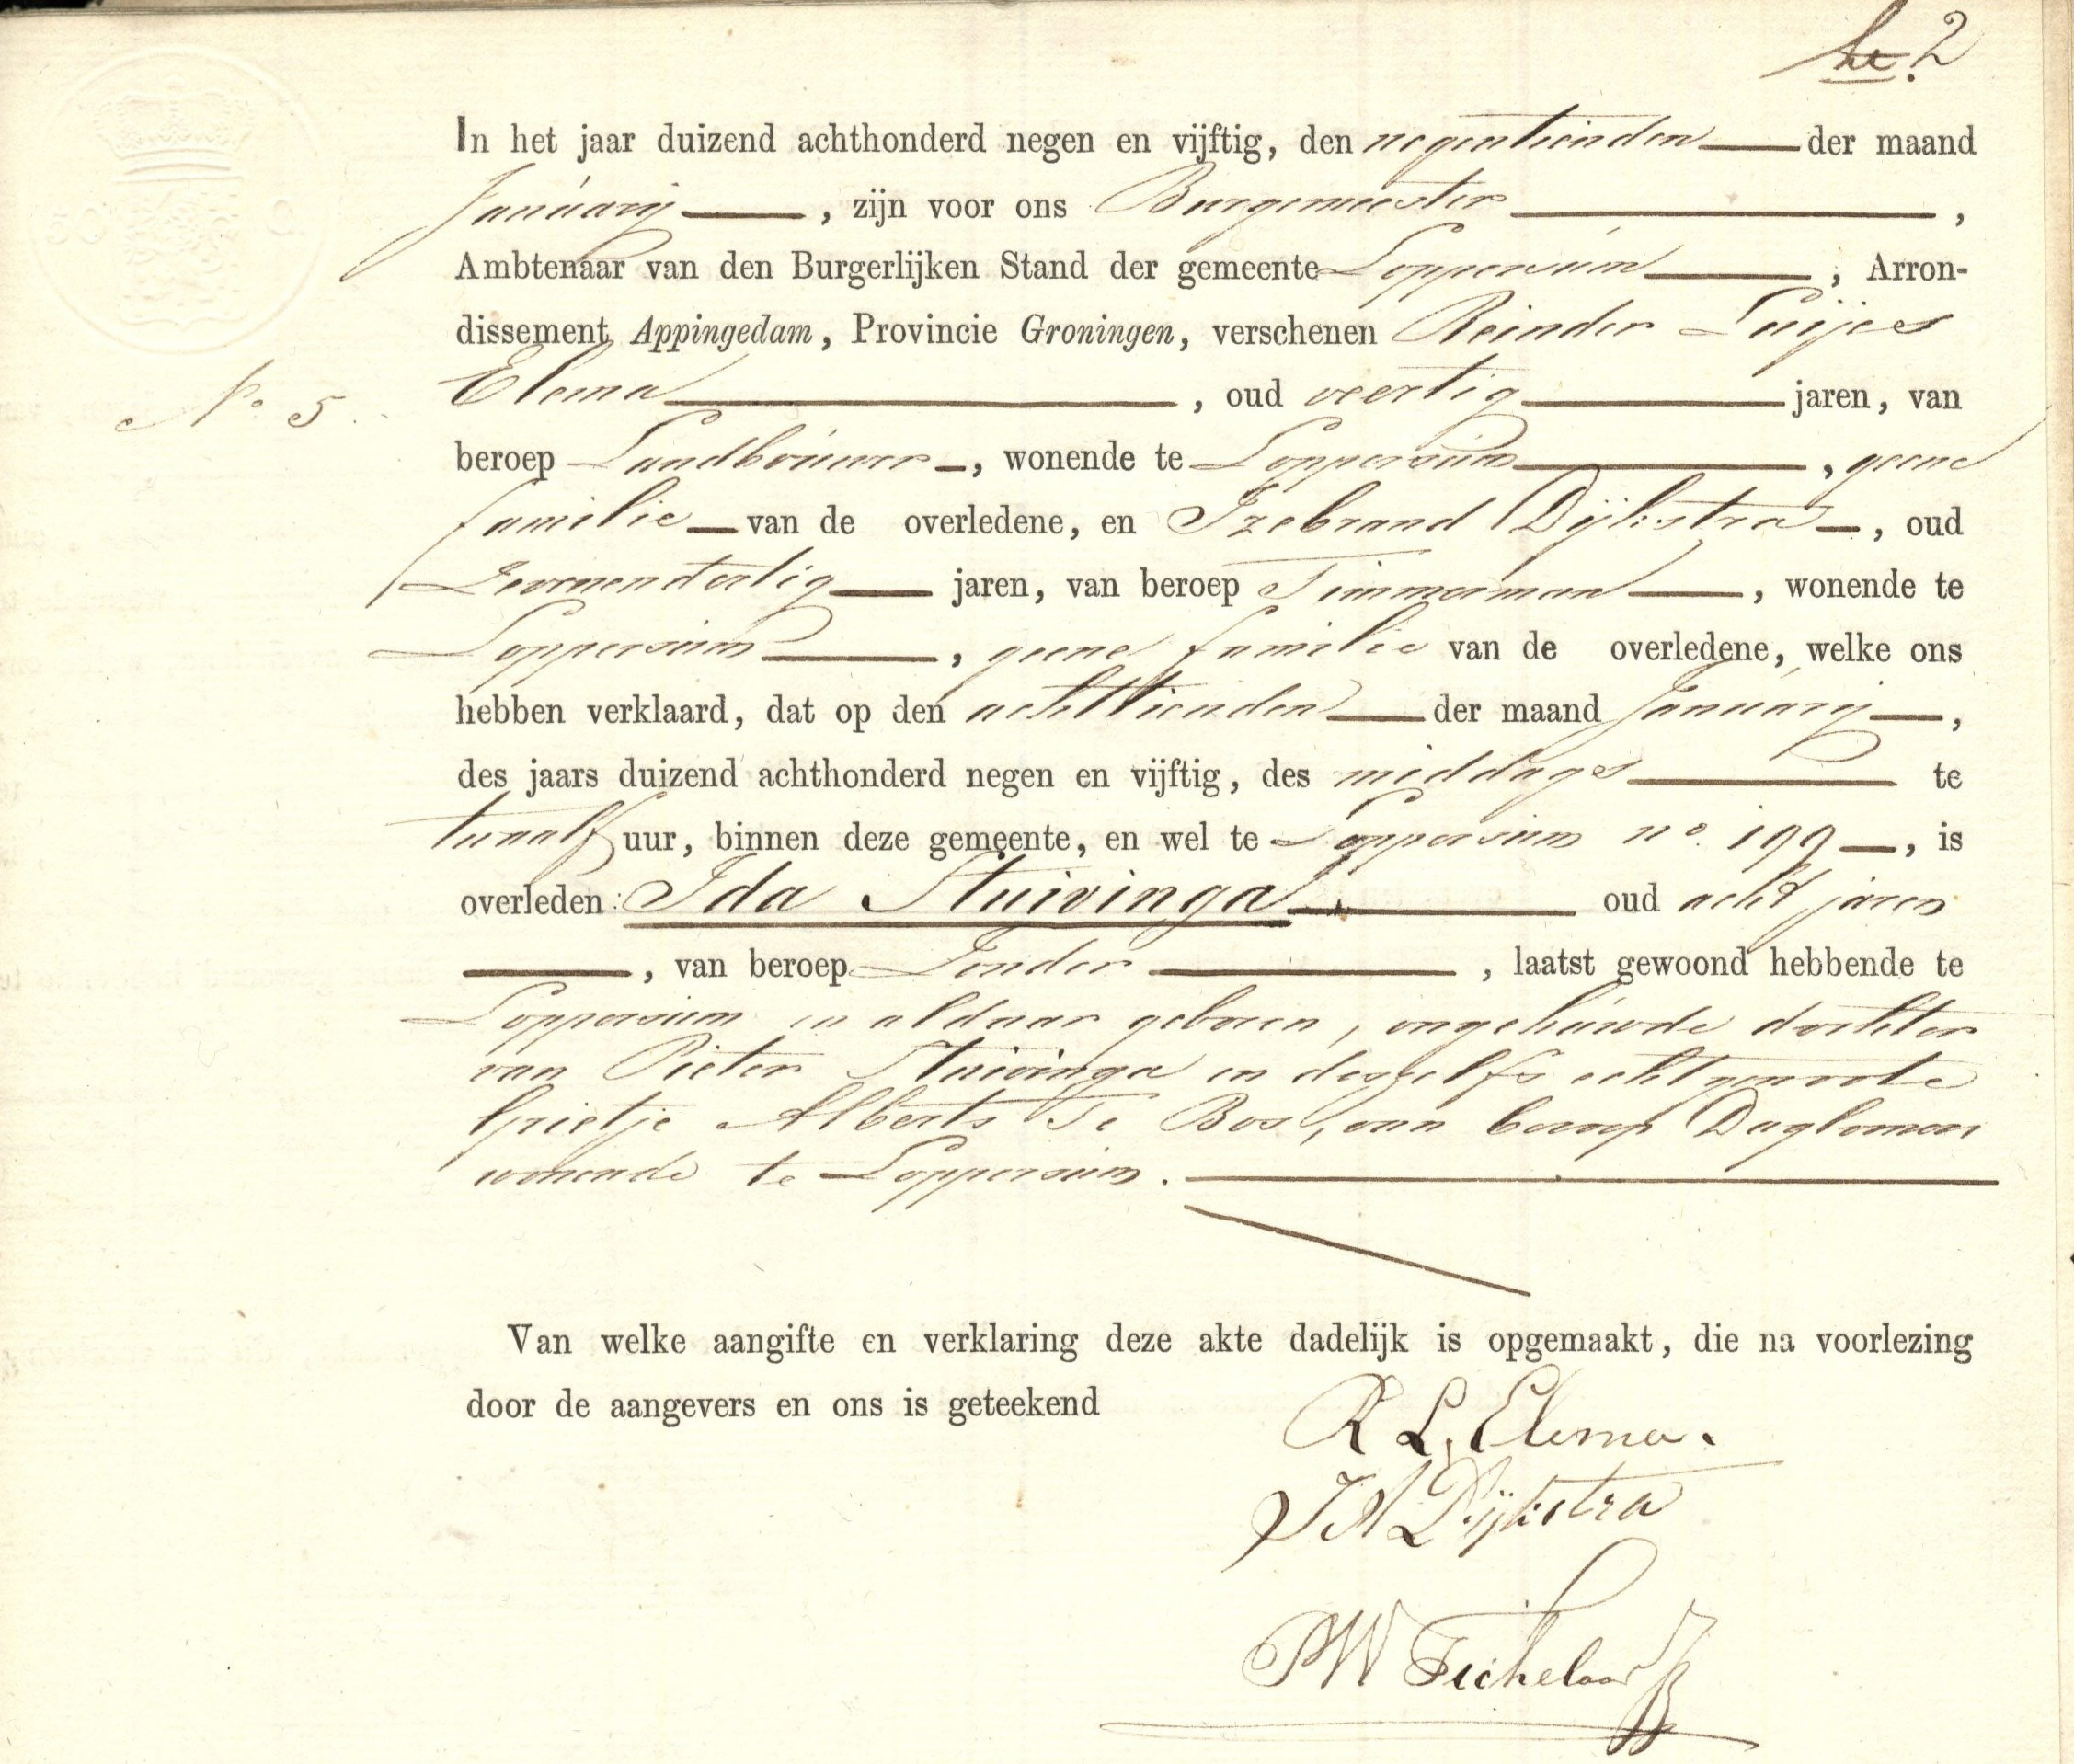 2
In het jaar duizend achthonderd negen en vijftig, den negentienden der maand
Januarij, zijn voor ons Burgemeester,
Ambtenaar van den Burgerlijken Stand der gemeente Loppersum, Arron-
dissement Appingedam, Provincie Groningen, verschenen Reinder Luijes
No 5.
Elema, oud veertig jaren, van
beroep Landbouwer, wonende te Loppersum, geene
familie van de overledene, en Izebrand Dijkstra, oud
Zevenendertig jaren, van beroep Timmerman, wonende te
Loppersum, geene familie van de overledene, welke ons
hebben verklaard, dat op den achttienden der maand Januarij,
des jaars duizend achthonderd negen en vijftig, des middags te
twaalf uur, binnen deze gemeente, en wel te Loppersum no. 199, is
overleden: Ida Stuivinga oud acht jaren
, van beroep Zonder, laatst gewoond hebbende te
Loppersum en aldaar geboren, ongehuwde dochter
van Pieter Stuivinga en deszelfs echtgenoote
Grietje Alberts Te Bos, van beroep
wonende te Loppersum.
Van welke aangifte en verklaring deze akte dadelijk is opgemaakt, die na voorlezing
door de aangevers en ons is geteekend
R L. Elema.
J A Dijkstra